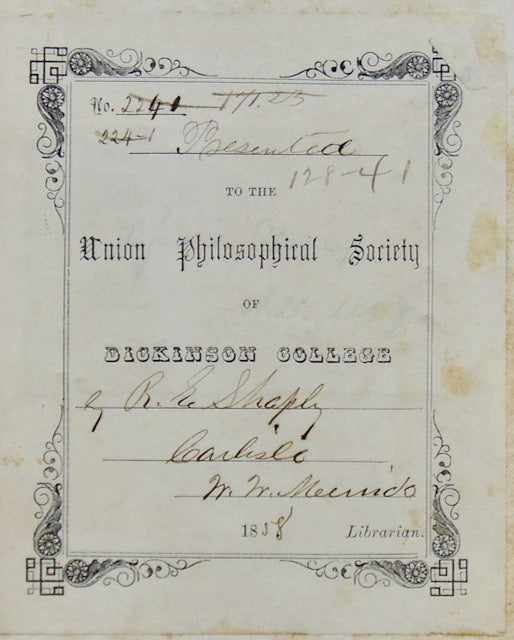 No. 2240 171.25
224-1 Presented
128-41
TO THE
Union Philosophical Society
OF
DICKINSON COLLEGE
by R. E. Shaply
Carlisle
W. W.
1858 Librarian.